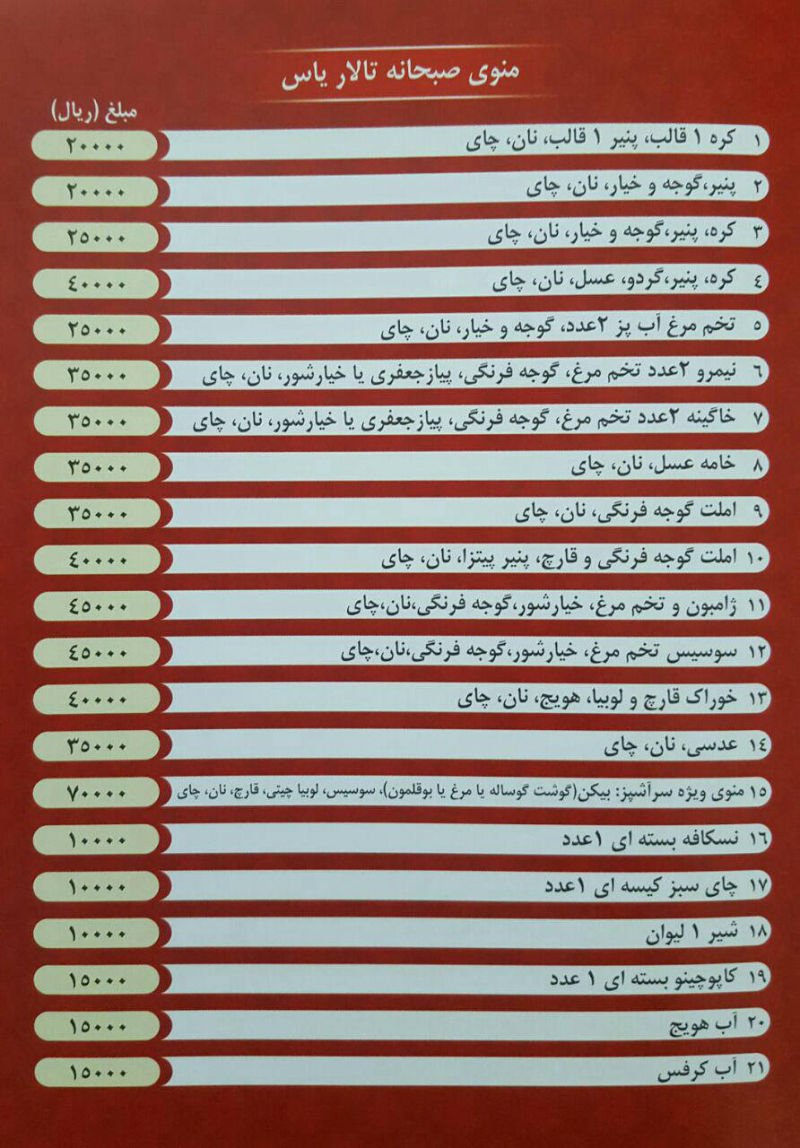 منوی صبحانه تالار یاس
مبلغ (ریال)
۱ کره ۱ قالب، پنیر ۱ قالب، نان، چای ۲۰۰۰۰
۲ پنیر،گوجه و خیار، نان، چای ۲۰۰۰۰
۳ کره، پنیر،گوجه و خیار، نان، چای ۲۵۰۰۰
٤ کره، پنیر،گردو، عسل، نان، چای ٤۰۰۰۰
۵ تخم مرغ آب پز ۲عدد، گوجه و خیار، نان، چای ۲۵۰۰۰
٦ نیمرو ۲عدد تخم مرغ، گوجه فرنگی، پیازجعفری یا خیارشور، نان، چای ۳۵۰۰۰
۷ خاگینه ۲عدد تخم مرغ، گوجه فرنگی، پیازجعفری یا خیارشور، نان، چای ۳۵۰۰۰
۸ خامه عسل، نان، چای ۳۵۰۰۰
۹ املت گوجه فرنگی، نان، چای ۳۵۰۰۰
۱۰ املت گوجه فرنگی و قارچ، پنیر پیتزا، نان، چای ٤۰۰۰۰
۱۱ ژامبون و تخم مرغ، خیارشور،گوجه فرنگی،نان،چای ٤۵۰۰۰
۱۲ سوسیس تخم مرغ، خیارشور،گوجه فرنگی،نان،چای ٤۵۰۰۰
۱۳ خوراک قارچ و لوبیا، هویج، نان، چای ٤۰۰۰۰
۱٤ عدسی، نان، چای ۳۵۰۰۰
۱۵ منوی ویژه سرآشپز: بیکن(گوشت گوساله یا مرغ یا بوقلمون)، سوسیس، لوبیا چیتی، قارچ، نان، چای ۷۰۰۰۰
۱٦ نسکافه بسته ای ۱عدد ۱۰۰۰۰
۱۷ چای سبز کیسه ای ۱عدد ۱۰۰۰۰
۱۸ شیر ۱ لیوان ۱۰۰۰۰
۱۹ کاپوچینو بسته ای ۱ عدد ۱۵۰۰۰
۲۰ آب هویج ۱۵۰۰۰
۲۱ آب کرفس ۱۵۰۰۰